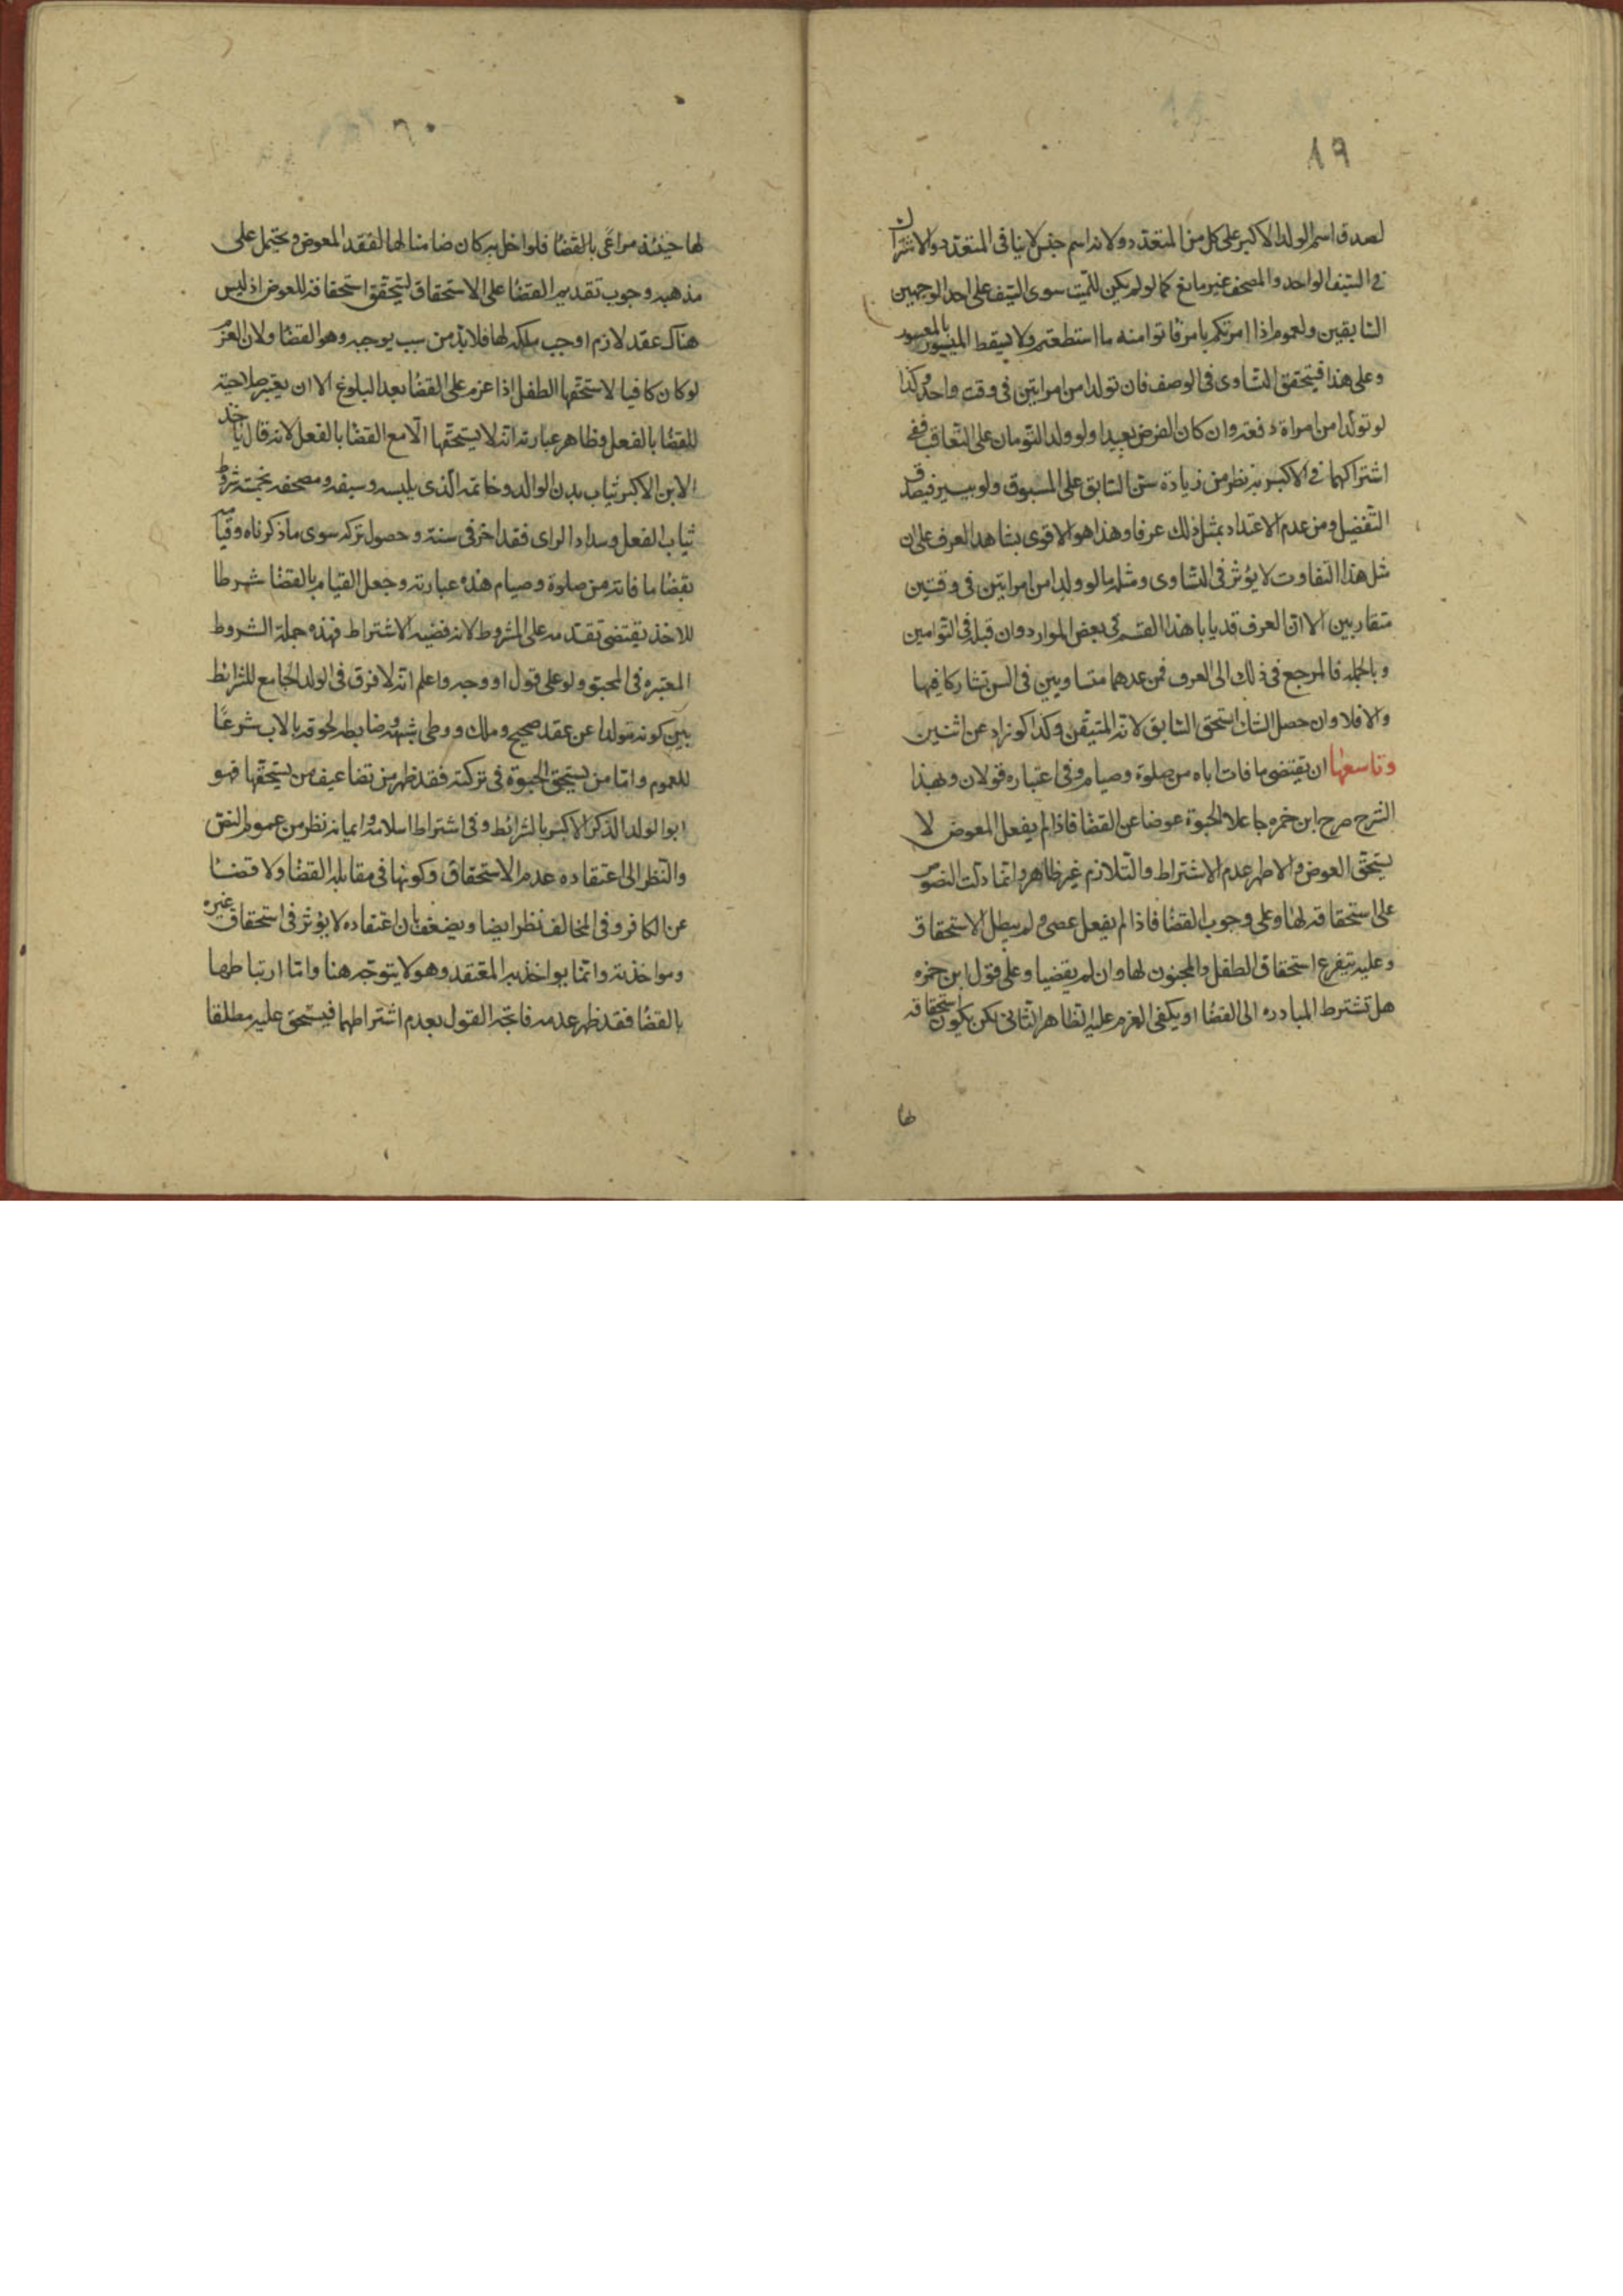 ١٩
لصدق اسم الولد الاكبر على كل من المتعدد ولانه اسم جنس لا ينافى المتعدد والاشتراك
فى السيف الواحد والمصحف غير مانع كما لو لم يكن للميت سوى السيف على احد الوجهين
السابقين ولعموم اذا امرتكم بامر فاتوا منه ما استطعتم ولا يسقط الميسور بالمعسور
وعلى هذا فيتحقق التساوى فى الوصف فان تولدا من امراتين فى وقت واحد وكذا
لو تولدا من امراة دفعة وان كان الفرض بعيدا ولو ولد التومان على التعاقب ففى
اشتراكهما فى الاكبرية نظر من زيادة سن السابق على المسبوق ولو بيسير فيصدق
التفضيل ومن عدم الاعتداد بمثل ذلك عرفا وهذا هو الاقوى بشاهد العرف على ان
مثل هذا التفاوت لا يؤثر فى التساوى ومثله ما لو ولدا من امراتين فى وقتين
متقاربين الا ان العرف قد يابا هذا القسم فى بعض الموارد وان قبله فى التوامين
وبالجملة فالمرجع فى ذلك الى العرف فمن عدهما متساويين فى السن تشاركا فيها
والا فلا وان حصل الشك استحق السابق لانه المتيقن وكذا لو زاد عن اثنين
وتاسعها ان يقتضى ما فات اباه من صلوة وصيام وفى اعتباره قولان وبهذا
الشرح صرح ابن حمزه جاعلا الحبوة عوضا عن القضا فاذا لم يفعل المعوض لا
يستحق العوض والاظهر عدم الاشتراط والتلازم غير ظاهر وانما دلت النصوص
على استحقاقه لها وعلى وجوب القضا فاذا لم يفعل عصى ولم يبطل الاستحقاق
وعليه يتفرع استحقاق الطفل والمجنون لها وان لم يقضيا وعلى قول ابن حمزه
هل تشترط المبادره الى القضا او يكفى العزم عليه الظاهر الثانى لكن يكون استحقاقه
لها
٢٠
لها حينئذ مراعى بالقضا فلو اخل به كان ضامنا لها لفقد المعوض ويحتمل على
مذهبه وجوب تقديم القضا على الاستحقاق ليتحقق استحقاقه للعوض اذ ليس
هناك عقد لازم اوجب ملكه لها فلا بد من سبب يوجبه وهو القضا ولان العزم
لو كان كافيا لاستحقها الطفل اذا عزم على القضا بعد البلوغ الا ان يعتبر صلاحيته
للقضا بالفعل وظاهر عبارته انه لا يستحقها الا مع القضا بالفعل لانه قال ياخذ
الابن الاكبر ثياب بدن الوالد وخاتمه الذى يلبسه وسيفه ومصحفه بخمسة شروط
ثبات العقل وسداد الراى فقد اخر فى سنه وحصول تركه سوى ما ذكرناه وقيامه
بقضا ما فاته من صلوة وصيام هذه عبارته وجعل القيام بالقضا شرطا
للاخذ يقتضى تقدمه على المشروط لانه قضيه الاشتراط فهذه جملة الشروط
المعتبره فى المحبو ولو على قول او وجه واعلم انه لا فرق فى الولد الجامع للشرائط
بين كونه متولدا عن عقد صحيح وملك ووطى شبهة وضابطه لحوقه بالاب شرعا
للعموم واما من يستحق الحبوة فى تركته فقد ظهر من تضاعيف من يستحقها فهو
ابو الولد الذكر الاكبر بالشرائط وفى اشتراط اسلامه وايمانه نظر من عموم النص
والنظر الى اعتقاده عدم الاستحقاق وكونها فى مقابله القضا ولا قضا
عن الكافر وفى المخالف نظر ايضا ويضعف بان اعتقاده لا يؤثر فى استحقاق غيره
ومواخذته وانما يواخذ به المعتقد وهو لا يتوجه هنا واما ارتباطها
بالقضا فقد ظهر عدمه فاتجه القول بعدم اشتراطهما فيستحق عليه مطلقا